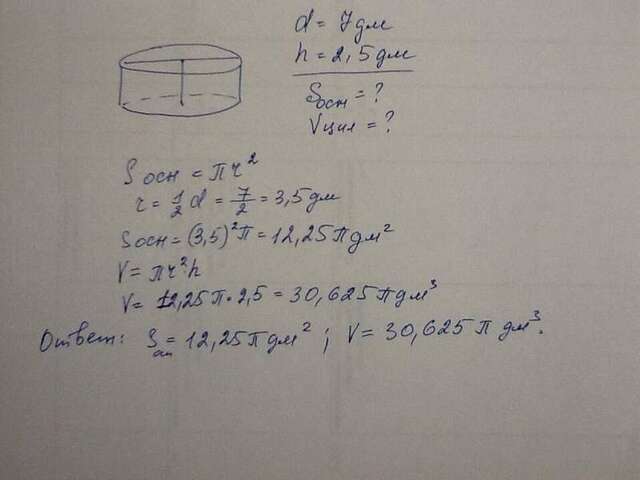 d = 7 дм
h = 2,5 дм
Sосн = ?
Vцил = ?
Sосн = πr²
r = 1/2 d = 7/2 = 3,5 дм
Sосн = (3,5)² π = 12,25 π дм²
V = πr²h
V = 12,25 π · 2,5 = 30,625 π дм³
Ответ: S = 12,25 π дм² ; V = 30,625 π дм³.